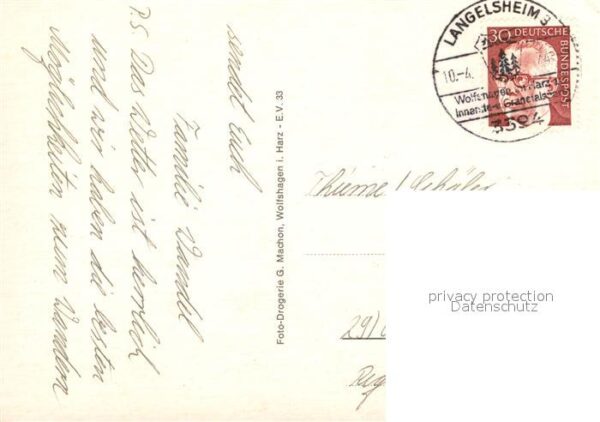 sendet Euch
Familie Wandel
P.S. Das Wetter ist herrlich
und wir haben die besten
Möglichkeiten zum Wandern
Foto-Drogerie G. Machon, Wolfshagen i. Harz - E.V. 33
LANGELSHEIM 3
10.-4.
Wolfshagen im Harz
Innerste-Granetal
3394
30 DEUTSCHE
BUNDESPOST
Thieme / Schäfer
29/
privacy protection
Datenschutz